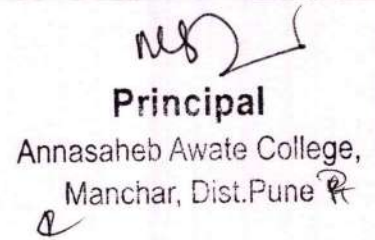 Principal
Annasaheb Awate College,
Manchar, Dist.Pune